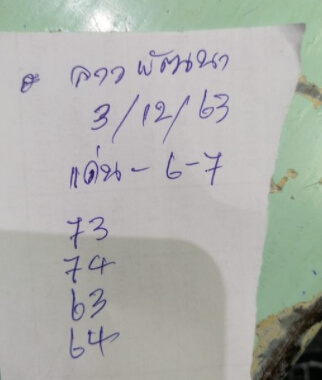 ลาวพัฒนา
3/12/63
เด่น - 6-7
73
74
63
64